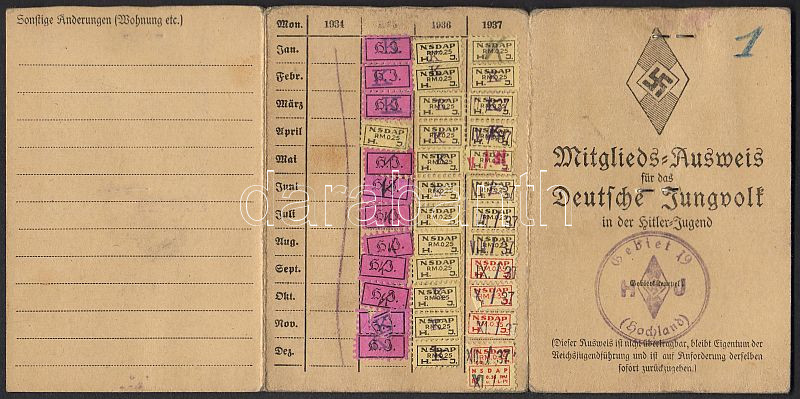 Sonstige Änderungen (Wohnung etc.)
Mon. 1934 1936 1937
Jan. H.J. NSDAP RM 0.25 H. J. K
Febr. H.J. NSDAP RM 0.25 H. J. K
März H.J. NSDAP RM 0.25 H. J. K
April NSDAP RM 0.25 H. J. NSDAP RM 0.25 H. J. K
Mai H.J. NSDAP RM 0.25 H. J.
Juni H.J. NSDAP RM 0.25 H. J.
Juli H.J. NSDAP RM 0.25 H. J.
Aug. H.J. NSDAP RM 0.25 H. J. VIII./37
Sept. H.J. NSDAP RM 0.25 H. J. IX./37
Okt. H.J. NSDAP RM 0.25 H. J. X./37
Nov. NSDAP RM 0.25 H. J. XI./37
Dez. H.J. NSDAP RM 0.25 H. J. XII./37
1
Mitglieds-Ausweis
für das
Deutsche Jungvolk
in der Hitler-Jugend
Gebiet 19
H J
(Hochland)
(Dieser Ausweis ist nicht übertragbar, bleibt Eigentum der
Reichsjugendführung und ist auf Anforderung derselben
sofort zurückzugeben.)
darabanth